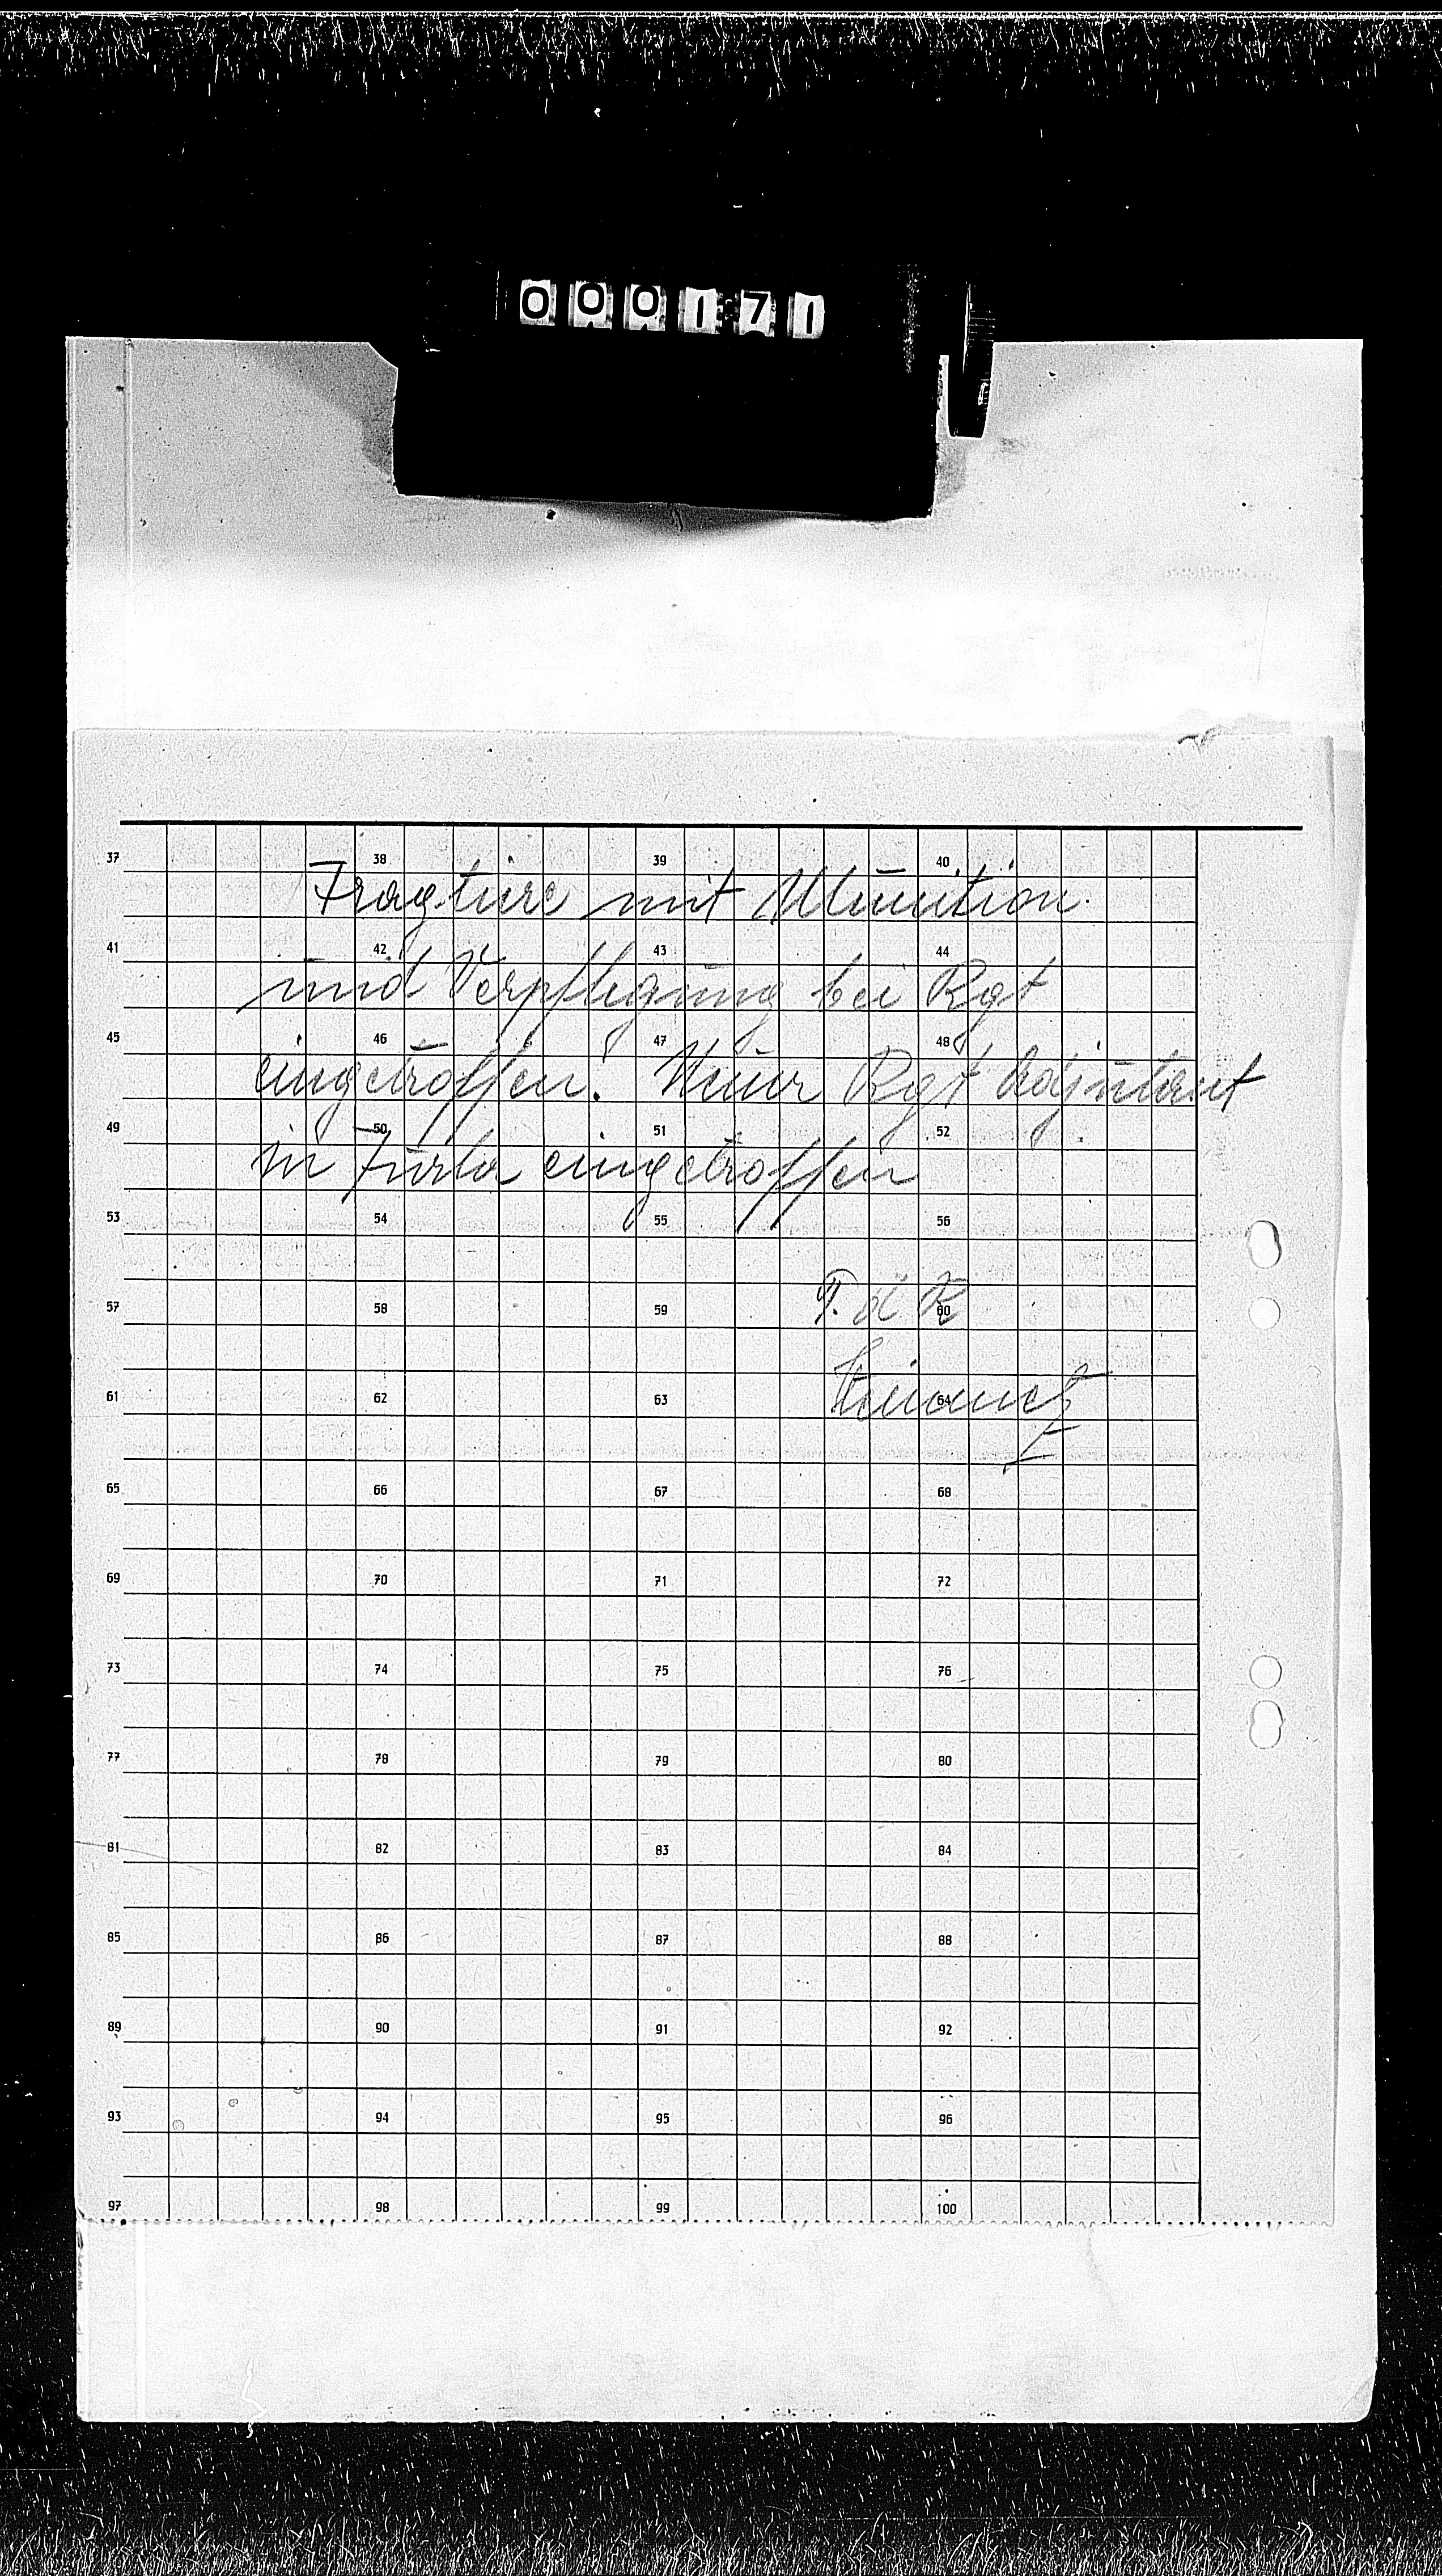 000171
37 38 39 40
Tragtiere mit Munition
41 42 43 44
und Verpflegung bei Rgt
45 46 47 48
eingetroffen. Neuer Rgt Adjutant
49 50 51 52
in eingetroffen
53 54 55 56
57 58 59 60
61 62 63 64
65 66 67 68
69 70 71 72
73 74 75 76
77 78 79 80
81 82 83 84
85 86 87 88
89 90 91 92
93 94 95 96
97 98 99 100